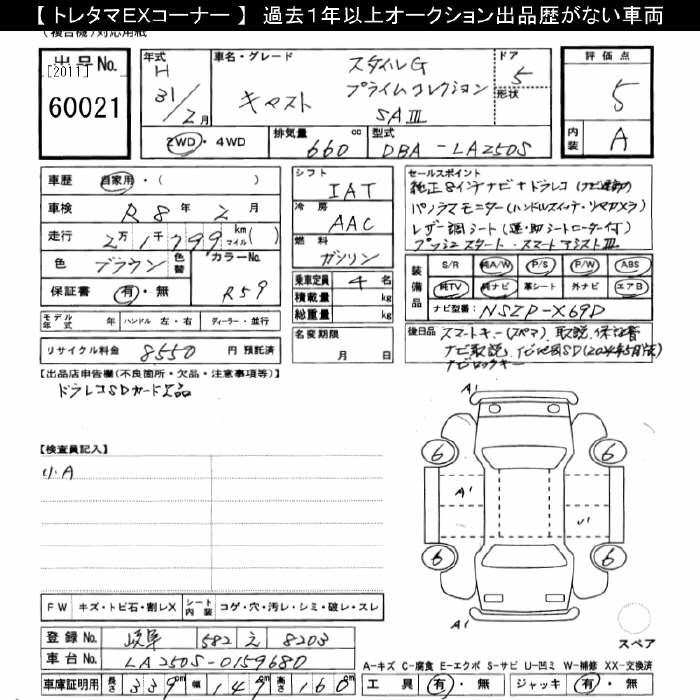 【 トレタマEXコーナー 】 過去1年以上オークション出品歴がない車両
(複合機)対応用紙
出品No.
[2011]
60021
年式
H
31/2月
車名・グレード
キャスト
スタイルG
プライムコレクション
SAⅢ
ドア
5
形状
評価点
5
内装
A
2WD・4WD
排気量
660
cc
型式
DBA-LA250S
車歴
自家用・(　　　)
車検
R8年2月
走行
2万1千799
km
マイル
(　)
色
ブラウン
色替
カラーNo.
R59
保証書
有・無
シフト
IAT
冷房
AAC
燃料
ガソリン
乗車定員
4名
積載量
kg
総重量
kg
名変期限
月　日
セールスポイント
純正8インチナビ+ドラレコ(ナビ連動)
パノラマモニター(ハンドルスイッチ・リヤカメラ)
レザー調シート(運・助シートヒーター付)
プッシュスタート・スマートアシストⅢ
装備品
S/R 純A/W P/S P/W ABS
純TV 純ナビ 革シート 外ナビ エアB
ナビ型番:
NSZP-X69D
モデル年式
年
ハンドル
左・右
ディーラー・並行
リサイクル料金
8550
円 預託済
後日品
スマートキー(スペア)取説、保証書
ナビ取説、ナビ地図SD(2024年5月版)
ナビロックキー
【出品店申告欄(不良箇所・欠品・注意事項等)】
ドラレコSDカード欠品
【検査員記入】
小A
A1
6
6
A1
U1
6
6
A1
スペア
FW
キズ・トビ石・割レX
シート内装
コゲ・穴・汚レ・シミ・破レ・スレ
登録No.
岐阜
582
え
8203
車台No.
LA250S-0159680
A-キズ C-腐食 E-エクボ S-サビ U-凹ミ W-補修 XX-交換済
車庫証明用
長さ
339cm
幅
149cm
高さ
160cm
工具
有・無
ジャッキ
有・無